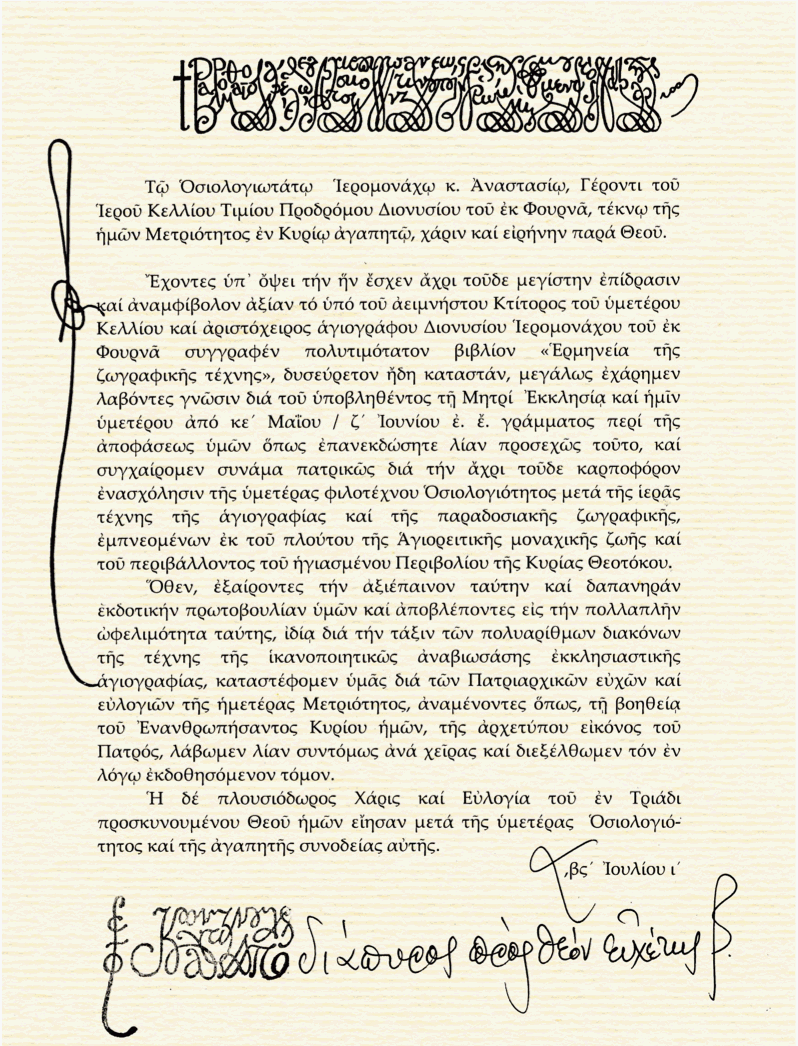 Τῷ Ὁσιολογιωτάτῳ Ἱερομονάχῳ κ. Ἀναστασίῳ, Γέροντι τοῦ
Ἱεροῦ Κελλίου Τιμίου Προδρόμου Διονυσίου τοῦ ἐκ Φουρνᾶ, τέκνῳ τῆς
ἡμῶν Μετριότητος ἐν Κυρίῳ ἀγαπητῷ, χάριν καί εἰρήνην παρά Θεοῦ.
Ἔχοντες ὑπ᾽ ὄψει τήν ἥν ἔσχεν ἄχρι τοῦδε μεγίστην ἐπίδρασιν
καί ἀναμφίβολον ἀξίαν τό ὑπό τοῦ ἀειμνήστου Κτίτορος τοῦ ὑμετέρου
Κελλίου καί ἀριστόχειρος ἁγιογράφου Διονυσίου Ἱερομονάχου τοῦ ἐκ
Φουρνᾶ συγγραφέν πολυτιμότατον βιβλίον «Ἑρμηνεία τῆς
ζωγραφικῆς τέχνης», δυσεύρετον ἤδη καταστάν, μεγάλως ἐχάρημεν
λαβόντες γνῶσιν διά τοῦ ὑποβληθέντος τῇ Μητρί Ἐκκλησίᾳ καί ἡμῖν
ὑμετέρου ἀπό κε´ Μαΐου / ζ´ Ἰουνίου ἐ. ἔ. γράμματος περί τῆς
ἀποφάσεως ὑμῶν ὅπως ἐπανεκδώσητε λίαν προσεχῶς τοῦτο, καί
συγχαίρομεν συνάμα πατρικῶς διά τήν ἄχρι τοῦδε καρποφόρον
ἐνασχόλησιν τῆς ὑμετέρας φιλοτέχνου Ὁσιολογιότητος μετά τῆς ἱερᾶς
τέχνης τῆς ἁγιογραφίας καί τῆς παραδοσιακῆς ζωγραφικῆς,
ἐμπνεομένων ἐκ τοῦ πλούτου τῆς Ἁγιορειτικῆς μοναχικῆς ζωῆς καί
τοῦ περιβάλλοντος τοῦ ἡγιασμένου Περιβολίου τῆς Κυρίας Θεοτόκου.
Ὅθεν, ἐξαίροντες τήν ἀξιέπαινον ταύτην καί δαπανηράν
ἐκδοτικήν πρωτοβουλίαν ὑμῶν καί ἀποβλέποντες εἰς τήν πολλαπλῆν
ὠφελιμότητα ταύτης, ἰδίᾳ διά τήν τάξιν τῶν πολυαρίθμων διακόνων
τῆς τέχνης τῆς ἱκανοποιητικῶς ἀναβιωσάσης ἐκκλησιαστικῆς
ἁγιογραφίας, καταστέφομεν ὑμᾶς διά τῶν Πατριαρχικῶν εὐχῶν καί
εὐλογιῶν τῆς ἡμετέρας Μετριότητος, ἀναμένοντες ὅπως, τῇ βοηθείᾳ
τοῦ Ἐνανθρωπήσαντος Κυρίου ἡμῶν, τῆς ἀρχετύπου εἰκόνος τοῦ
Πατρός, λάβωμεν λίαν συντόμως ἀνά χεῖρας καί διεξέλθωμεν τόν ἐν
λόγῳ ἐκδοθησόμενον τόμον.
Ἡ δέ πλουσιόδωρος Χάρις καί Εὐλογία τοῦ ἐν Τριάδι
προσκυνουμένου Θεοῦ ἡμῶν εἴησαν μετά τῆς ὑμετέρας Ὁσιολογιό-
τητος καί τῆς ἀγαπητῆς συνοδείας αὐτῆς.
͵βς´ Ἰουλίου ι´
διάπυρος πρός Θεόν εὐχέτης